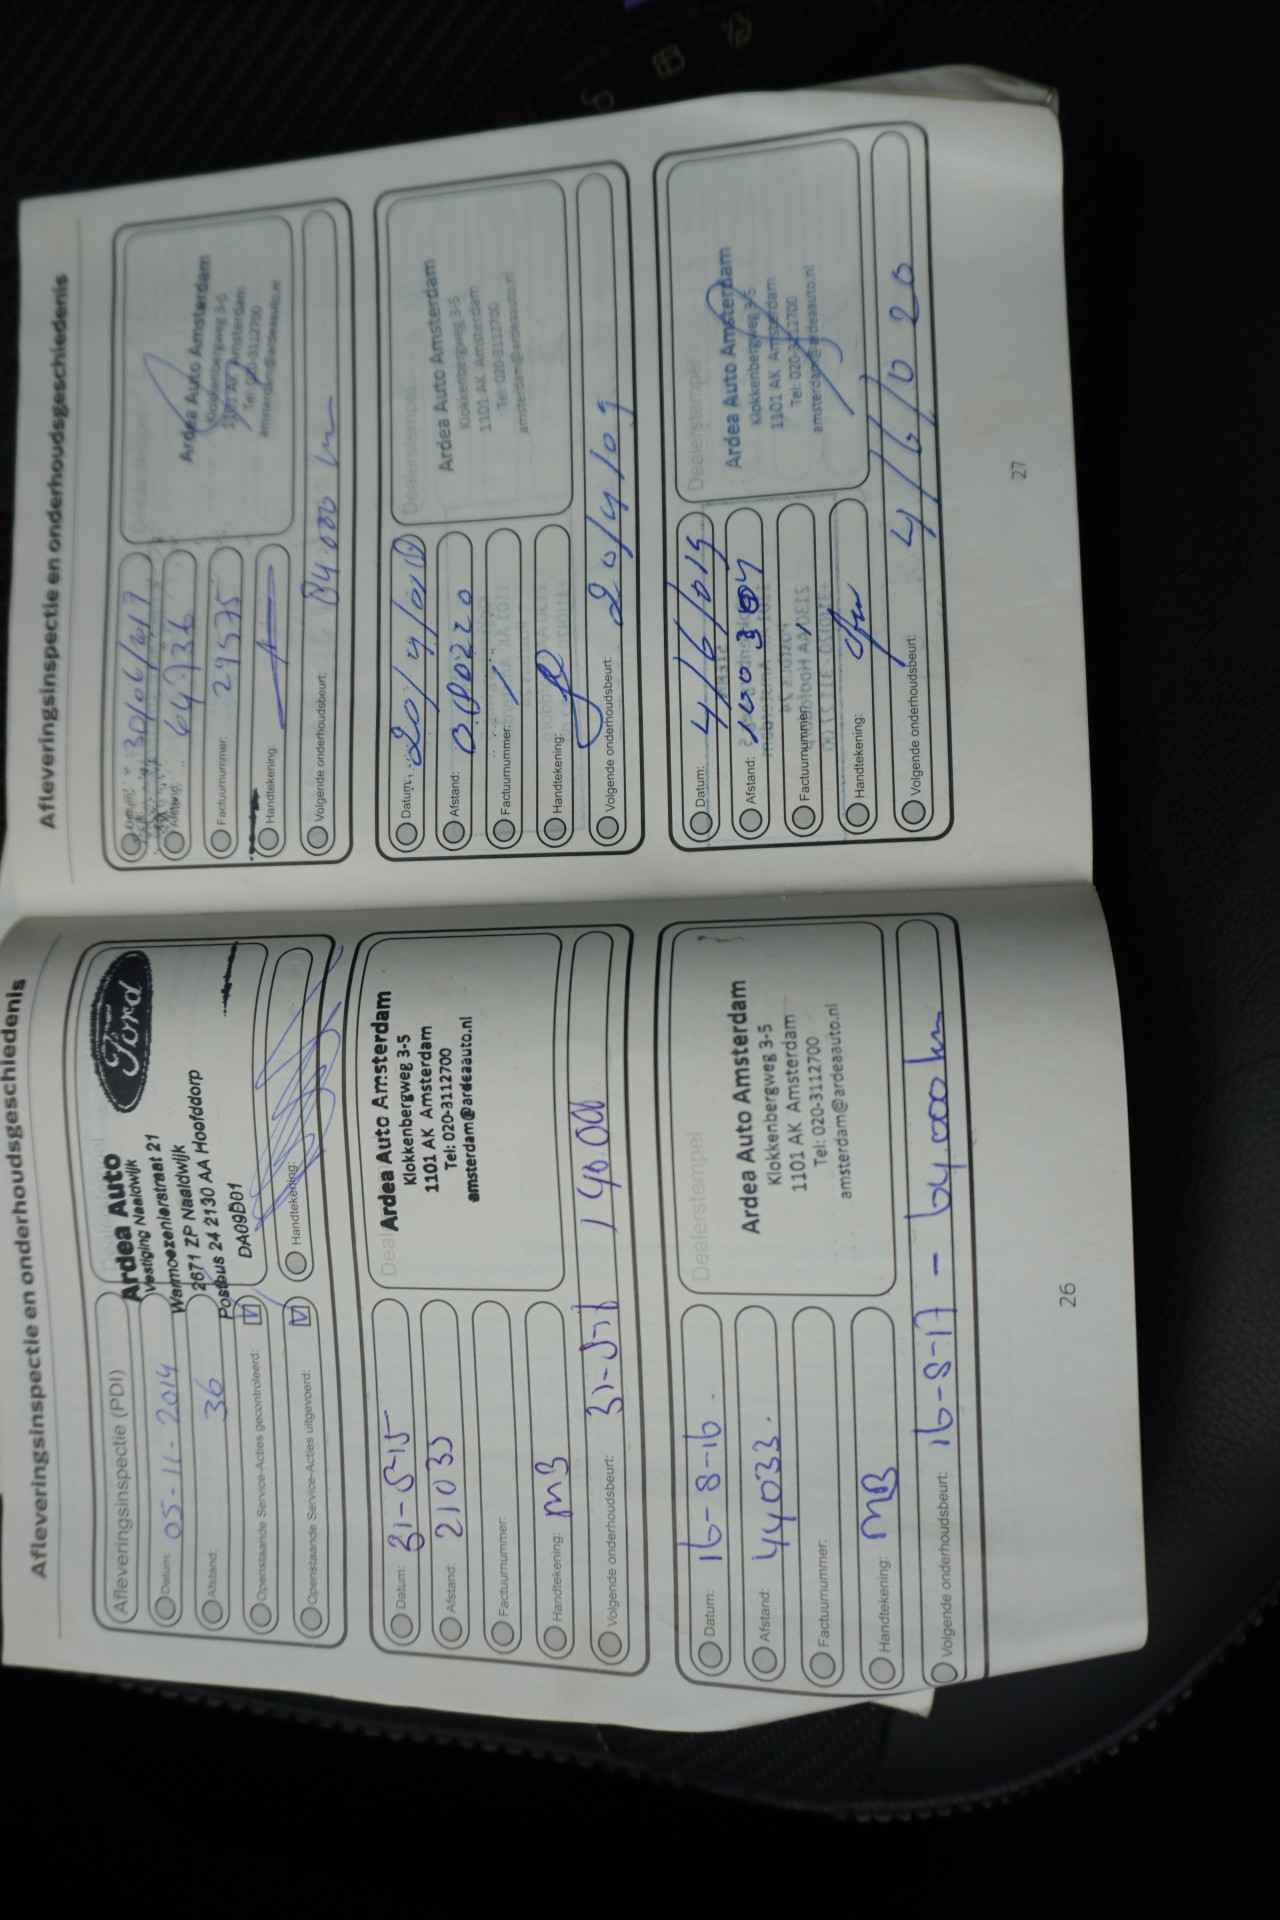 Afleveringsinspectie en onderhoudsgeschiedenis
Afleveringsinspectie (PDI)
Datum: 05-11-2014
Afstand: 36
Openstaande Service-Acties gecontroleerd: V
Openstaande Service-Acties uitgevoerd: V
Ford
Ardea Auto
Vestiging Naaldwijk
Warmoezenierstraat 21
2671 ZP Naaldwijk
Postbus 24 2130 AA Hoofddorp
DA09D01
Handtekening:
Datum: 31-5-15
Afstand: 21035
Factuurnummer:
Handtekening: MB
Volgende onderhoudsbeurt: 31-5-16 / 40.000
Ardea Auto Amsterdam
Klokkenbergweg 3-5
1101 AK Amsterdam
Tel: 020-3112700
amsterdam@ardeaauto.nl
Datum: 16-8-16.
Afstand: 44033.
Factuurnummer:
Handtekening: MB
Volgende onderhoudsbeurt: 16-8-17 - 64.000 km
Dealerstempel
Ardea Auto Amsterdam
Klokkenbergweg 3-5
1101 AK Amsterdam
Tel: 020-3112700
amsterdam@ardeaauto.nl
26
Afleveringsinspectie en onderhoudsgeschiedenis
Datum: 30/06/2017
Afstand: 64736
Factuurnummer: 29575
Handtekening:
Volgende onderhoudsbeurt: 84.000 km
Ardea Auto Amsterdam
Klokkenbergweg 3-5
1101 AK Amsterdam
Tel: 020-3112700
amsterdam@ardeaauto.nl
Datum: 20/4/018
Afstand: 080220
Factuurnummer: /
Handtekening:
Volgende onderhoudsbeurt: 20/4/019
Dealerstempel
Ardea Auto Amsterdam
Klokkenbergweg 3-5
1101 AK Amsterdam
Tel: 020-3112700
amsterdam@ardeaauto.nl
Datum: 4/6/019
Afstand: 100304
Factuurnummer:
Handtekening:
Volgende onderhoudsbeurt: 4/6/020
Dealerstempel
Ardea Auto Amsterdam
Klokkenbergweg 3-5
1101 AK Amsterdam
Tel: 020-3112700
amsterdam@ardeaauto.nl
27